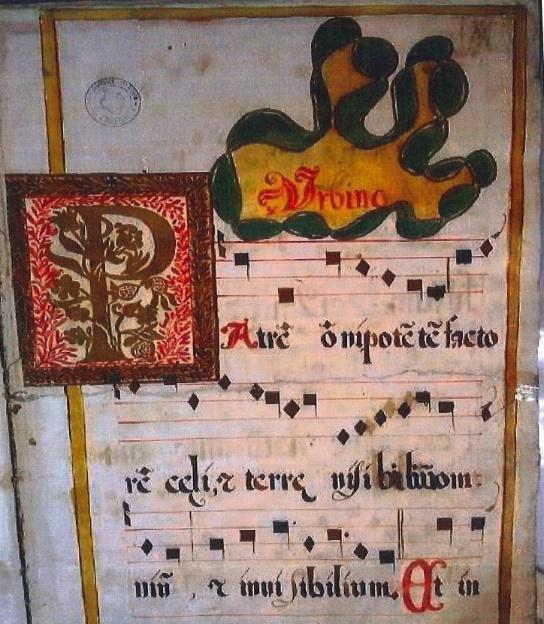 Urbino
PAtrē ōnipotētē facto
rē celi, ⁊ terre visibiliūom:
niū , ⁊ invisibilium, Et in